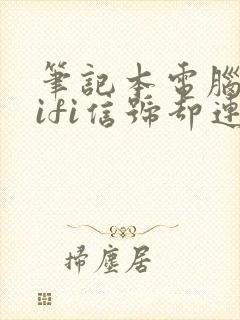 筆記本電腦
ifi信號却連
掃塵居